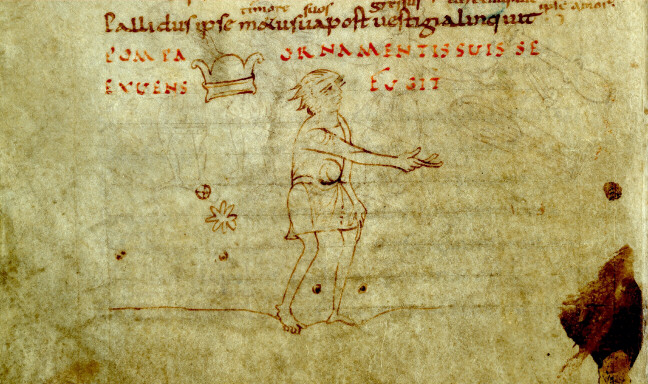 timore suos gressus ipse amor
Pallidus ipse metu sua post uestigia linquit
POMPA ORNAMENTIS SUIS SE
EXUENS FUGIT